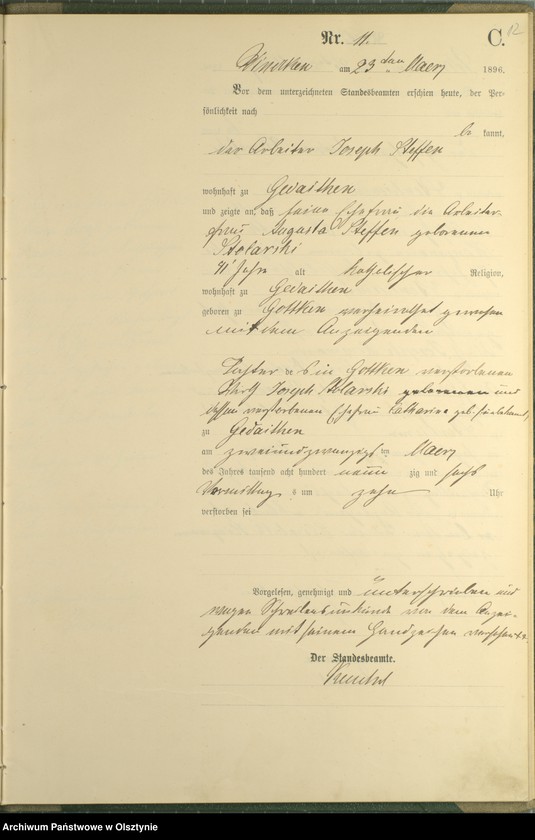 12
Nr. 11. C.
am 23ten Maerz 1896.
Vor dem unterzeichneten Standesbeamten erschien heute, der Per-
sönlichkeit nach
be kannt,
der Arbeiter Joseph Steffen
wohnhaft zu Gedaithen
und zeigte an, daß seine Ehefrau die Arbeiter-
frau Augusta Steffen geborenen
Stolarski
41 Jahre alt katholischer Religion,
wohnhaft zu Gedaithen
geboren zu Gottken verheirathet gewesen
mit dem Anzeigenden
Tochter des in Gottken verstorbenen
Joseph Stolarski und
dessen verstorbenen Ehefrau Catharina geb.
zu Gedaithen
am zweiundzwanzigsten Maerz
des Jahres tausend acht hundert neun zig und sechs
Vormittags um zehn Uhr
verstorben sei
Vorgelesen, genehmigt und unterschrieben und
wegen Schreibensunkunde von dem Anzei-
genden mit seinem Handzeichen versehen
Der Standesbeamte.
Archiwum Państwowe w Olsztynie